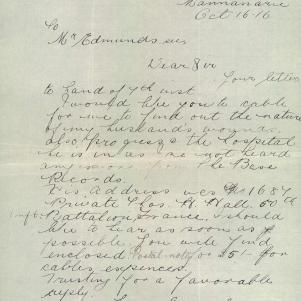 Mannanarie
Oct 16-16
To
Mr Edmunds
Dear Sir
Your letter
to hand of 7th inst
I would like you to cable
for me to find out the nature
of my husbands wounds
also progress & the hospital
he is in as I've not heard
from the Base
Records.
His Address was 1687
Private Thos. H. Hall. 50th
Battalion France. I should
like to hear as soon as
possible. You will find
enclosed Postal note for 25/- for
cables expences.
Trusting for a favorable
reply.